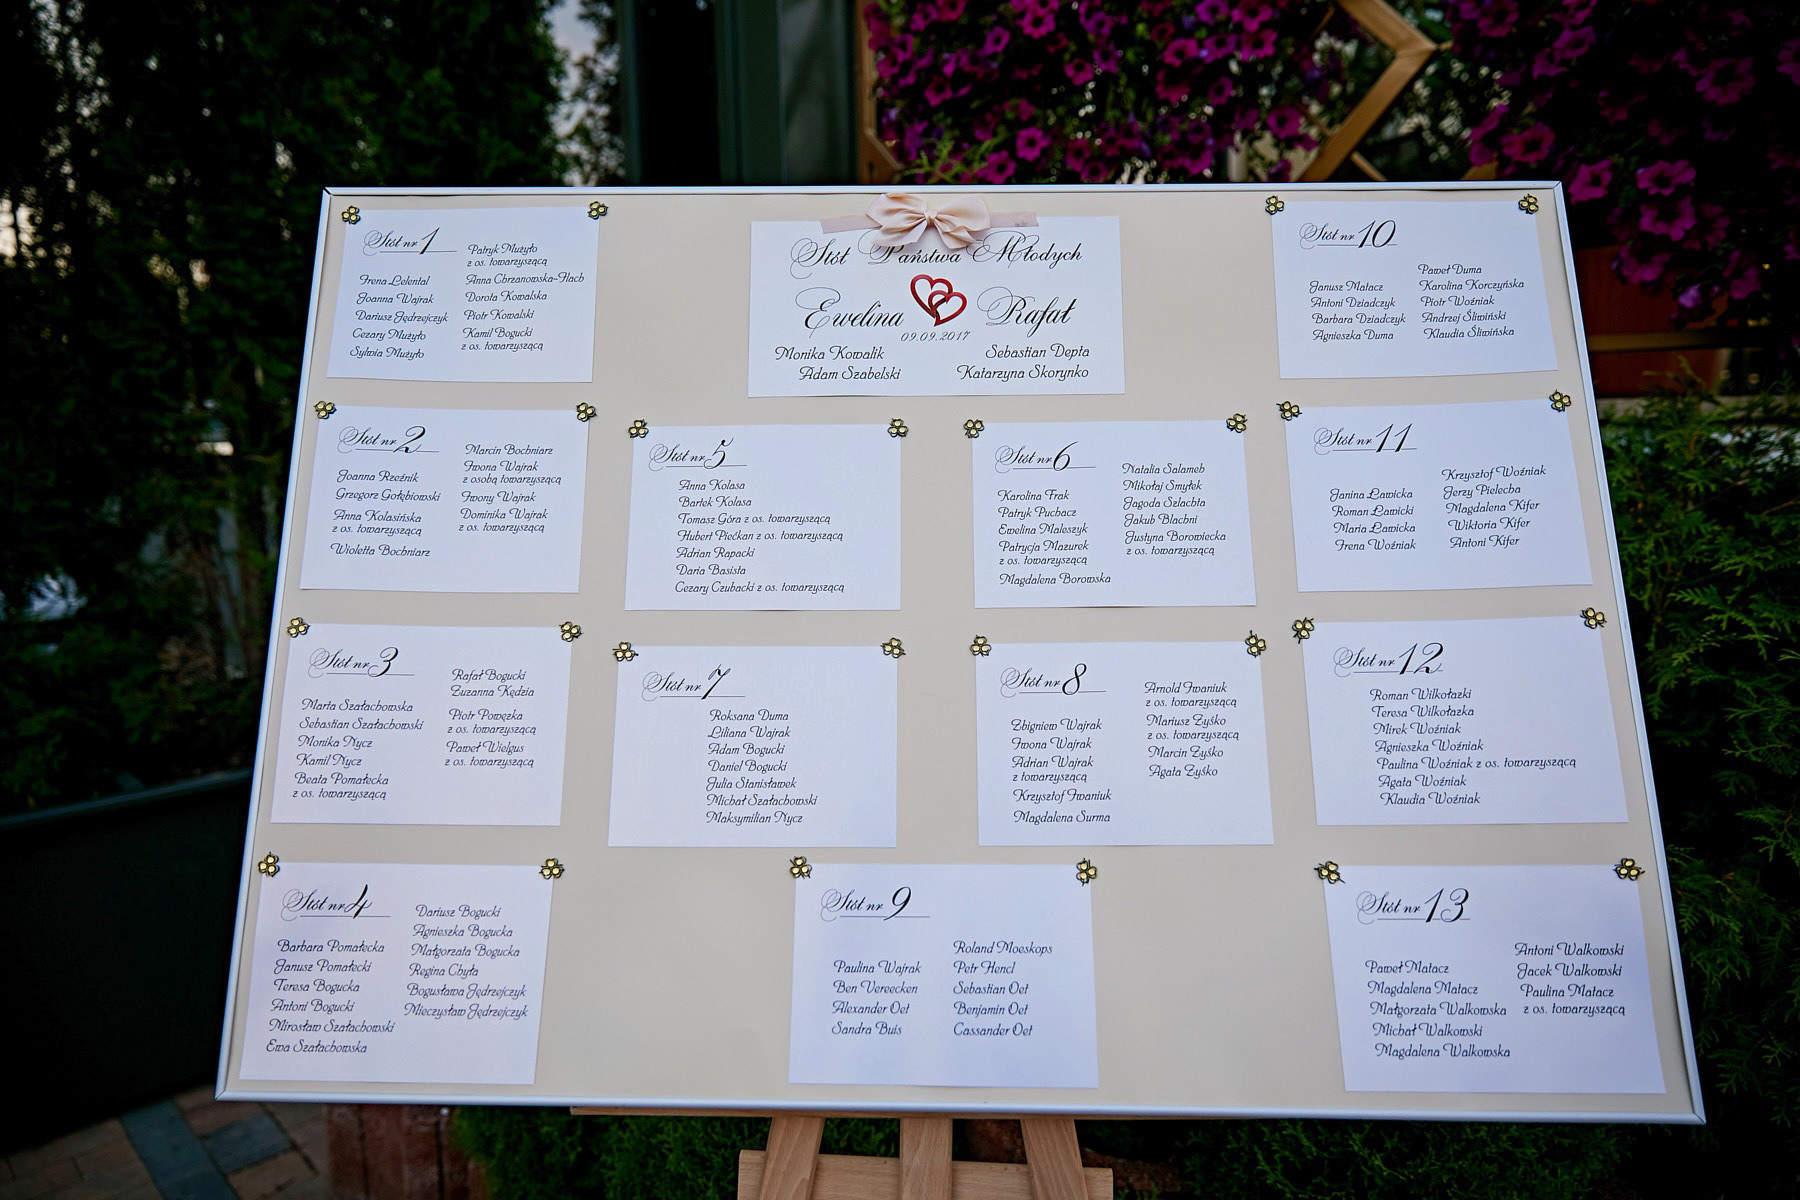 Stół Państwa Młodych
Ewelina Rafał
09.09.2017
Monika Kowalik
Adam Szabelski
Sebastian Depta
Katarzyna Skorynko
Stół nr 1
Irena Lelental
Joanna Wajrak
Dariusz Jędrzejczyk
Cezary Mużyło
Sylwia Mużyło
Patryk Mużyło
z os. towarzyszącą
Anna Chrzanowska-Flach
Dorota Kowalska
Piotr Kowalski
Kamil Bogucki
z os. towarzyszącą
Stół nr 2
Joanna Rzeźnik
Grzegorz Gołębiowski
Anna Kolasińska
z os. towarzyszącą
Wioletta Bochniarz
Marcin Bochniarz
Iwona Wajrak
z osobą towarzyszącą
Iwony Wajrak
Dominika Wajrak
z os. towarzyszącą
Stół nr 3
Marta Szałachowska
Sebastian Szałachowski
Monika Nycz
Kamil Nycz
Beata Pomałecka
z os. towarzyszącą
Rafał Bogucki
Zuzanna Kędzia
Piotr Powęzka
z os. towarzyszącą
Paweł Wielgus
z os. towarzyszącą
Stół nr 4
Barbara Pomałecka
Janusz Pomałecki
Teresa Bogucka
Antoni Bogucki
Mirosław Szałachowski
Ewa Szałachowska
Dariusz Bogucki
Agnieszka Bogucka
Małgorzata Bogucka
Regina Chyła
Bogusława Jędrzejczyk
Mieczysław Jędrzejczyk
Stół nr 5
Anna Kolasa
Bartek Kolasa
Tomasz Góra z os. towarzyszącą
Hubert Piećkan z os. towarzyszącą
Adrian Rapacki
Daria Basista
Cezary Czubacki z os. towarzyszącą
Stół nr 6
Karolina Frak
Patryk Puchacz
Ewelina Maleszyk
Patrycja Mazurek
z os. towarzyszącą
Magdalena Borowska
Natalia Salameh
Mikołaj Smyłek
Jagoda Szlachta
Jakub Blachni
Justyna Borowiecka
z os. towarzyszącą
Stół nr 7
Roksana Duma
Liliana Wajrak
Adam Bogucki
Daniel Bogucki
Julia Stanisławek
Michał Szałachowski
Maksymilian Nycz
Stół nr 8
Zbigniew Wajrak
Iwona Wajrak
Adrian Wajrak
z towarzyszącą
Krzysztof Iwaniuk
Magdalena Surma
Arnold Iwaniuk
z os. towarzyszącą
Mariusz Zyśko
z os. towarzyszącą
Marcin Zyśko
Agata Zyśko
Stół nr 9
Paulina Wajrak
Ben Vereecken
Alexander Oet
Sandra Buis
Roland Moeskops
Petr Hencl
Sebastian Oet
Benjamin Oet
Cassander Oet
Stół nr 10
Janusz Matacz
Antoni Dziadczyk
Barbara Dziadczyk
Agnieszka Duma
Paweł Duma
Karolina Korczyńska
Piotr Woźniak
Andrzej Śliwiński
Klaudia Śliwińska
Stół nr 11
Janina Ławicka
Roman Ławicki
Maria Ławicka
Irena Woźniak
Krzysztof Woźniak
Jerzy Pielecha
Magdalena Kifer
Wiktoria Kifer
Antoni Kifer
Stół nr 12
Roman Wilkołazki
Teresa Wilkołazka
Mirek Woźniak
Agnieszka Woźniak
Paulina Woźniak z os. towarzyszącą
Agata Woźniak
Klaudia Woźniak
Stół nr 13
Paweł Matacz
Magdalena Matacz
Małgorzata Walkowska
Michał Walkowski
Magdalena Walkowska
Antoni Walkowski
Jacek Walkowski
Paulina Matacz
z os. towarzyszącą